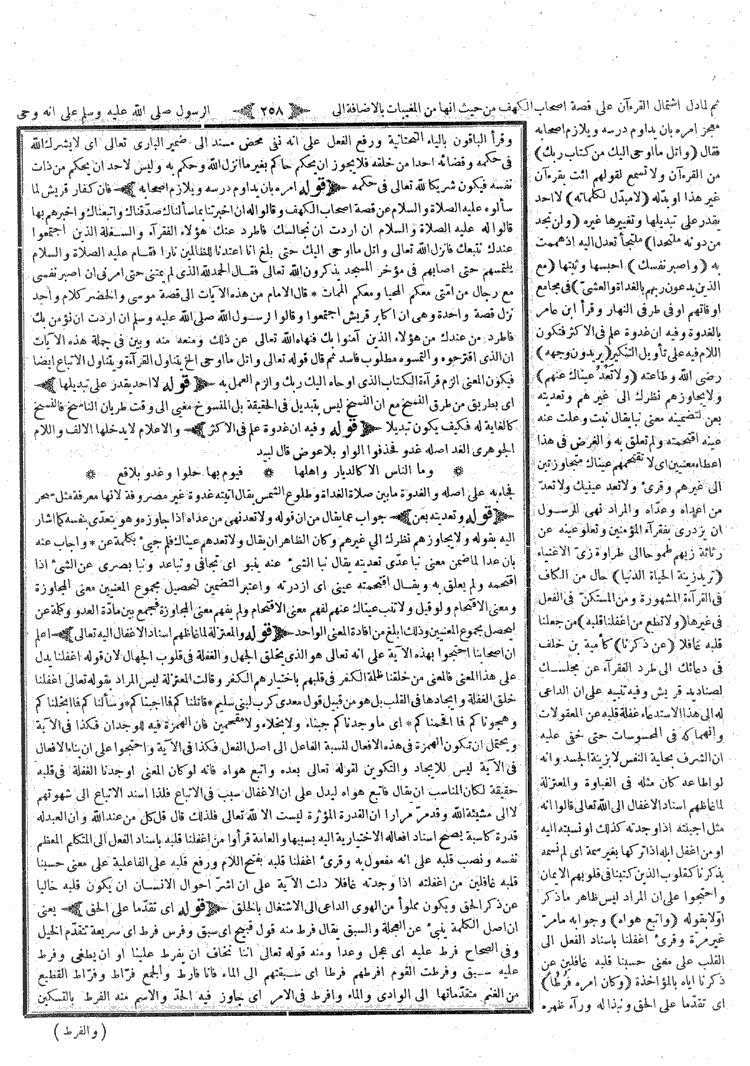 ثم لمادل اشتمال القرءآن على قصة اصحاب الكهف من حيث انها من المغيبات بالاضافة الى ﴿ ٢٥٨ ﴾ الرسول صلى الله عليه وسلم على انه وحى
معجز امره بان يداوم درسه ويلازم اصحابه
فقال (واتل ما اوحى اليك من كتاب ربك)
من القرءآن ولا تسمع لقولهم ائت بقرءآن
غير هذا او بدله (لامبدل لكلماته) لا احد
يقدر على تبديلها وتغييرها غيره (ولن تجد
من دونه ملتحدا) ملتجأ تعدل اليه اذ هممت
به (واصبر نفسك) احبسها وثبتها (مع
الذين يدعون ربهم بالغداة والعشى) فى مجامع
اوقاتهم او فى طرفى النهار وقرأ ابن عامر
بالغدوة وفيه ان غدوة علم فى الاكثر فتكون
اللام فيه على تأويل التنكير (يريدون وجهه)
رضى الله وطاعته (ولا تعد عيناك عنهم)
ولا يجاوزهم نظرك الى غيرهم وتعديته
بعن لتضمينه معنى نبا يقال نبت وعلت عنه
عينه اقتحمته ولم تعلق به والغرض فى هذا
اعطاء معنيين اى لا تقتحمهم عيناك متجاوزتين
الى غيرهم وقرئ ولا تعد عينيك ولا تعد
من اعداه وعداه والمراد نهى الرسول
ان يزدرى بفقرآء المؤمنين وتعلو عينه عن
رثاثة زيهم طموحا الى طراوة زى الاغنياء
(تريد زينة الحياة الدنيا) حال من الكاف
فى القرآءة المشهورة ومن المستكن فى الفعل
فى غيرها (ولا تطع من اغفلنا قلبه) من جعلنا
قلبه غافلا (عن ذكرنا) كأمية بن خلف
فى دعائك الى طرد الفقرآء عن مجلسك
لصناديد قريش وفيه تنبيه على ان الداعى
له الى هذا الاستدعاء غفلة قلبه عن المعقولات
وانهماكه فى المحسوسات حتى خفى عليه
ان الشرف بحلية النفس لا بزينة الجسد وانه
لو اطاعه كان مثله فى الغباوة والمعتزلة
لما غاظهم اسناد الاغفال الى الله تعالى قالوا انه
مثل اجبنته اذا وجدته كذلك او نسبته اليه
او من اغفل ابله اذا تركها بغير سمة اى لم نسمه
بذكرنا كقلوب الذين كتبنا فى قلوبهم الايمان
واحتجوا على ان المراد ليس ظاهر ما ذكر
اولا بقوله (واتبع هواه) وجوابه مامر
غير مرة وقرئ اغفلنا باسناد الفعل الى
القلب على معنى حسبنا قلبه غافلين عن
ذكرنا اياه بالمؤاخذة (وكان امره فرطا)
اى تقدما على الحق ونبذا له ورآء ظهره
وقرأ الباقون بالياء التحتانية ورفع الفعل على انه نفى محض مسند الى ضمير البارى تعالى اى لا يشرك الله
فى حكمه وقضائه احدا من خلقه فلا يجوز ان يحكم حاكم بغير ما انزل الله وحكم به وليس لاحد ان يحكم من ذات
نفسه فيكون شريكا لله تعالى فى حكمه ﴿ قوله امره بان يداوم درسه ويلازم اصحابه ﴾ فان كفار قريش لما
سألوه عليه الصلاة والسلام عن قصة اصحاب الكهف وقالوا له ان اخبرتنا بما سألناك صدقناك واتبعناك واخبرهم بها
قالوا له عليه الصلاة والسلام ان اردت ان نجالسك فاطرد عنك هؤلاء الفقرآء والسفلة الذين اجتمعوا
عندك نتبعك فانزل الله تعالى واتل ما اوحى اليك حتى بلغ انا اعتدنا للظالمين نارا فقام عليه الصلاة والسلام
يلتمسهم حتى اصابهم فى مؤخر المسجد يذكرون الله تعالى فقال الحمد لله الذى لم يمتنى حتى امرنى ان اصبر نفسى
مع رجال من امتى معكم المحيا ومعكم الممات * قال الامام من هذه الآيات الى قصة موسى والخضر كلام واحد
نزل قصة واحدة وهى ان اكابر قريش اجتمعوا وقالوا لرسول الله صلى الله عليه وسلم ان اردت ان نؤمن بك
فاطرد من عندك من هؤلاء الذين آمنوا بك فنهاه الله تعالى عن ذلك ومنعه منه وبين فى جملة هذه الآيات
ان الذى اقترحوه والتمسوه مطلوب فاسد ثم قال قوله تعالى واتل ما اوحى الخ يتناول القرآءة ويتناول الاتباع ايضا
فيكون المعنى الزم قرآءة الكتاب الذى اوحاه اليك ربك والزم العمل به ﴿ قوله لا احد يقدر على تبديلها ﴾
اى بطريق من طرق النسخ مع ان النسخ ليس بتبديل فى الحقيقة بل المنسوخ مغيى الى وقت طريان الناسخ فالنسخ
كالغاية له فكيف يكون تبديلا ﴿ قوله وفيه ان غدوة علم فى الاكثر ﴾ والاعلام لا يدخلها الالف واللام
الجوهرى الغد اصله غدو فحذفوا الواو بلا عوض قال لبيد
* وما الناس الا كالديار واهلها * فيوم بها حلوا وغدو بلاقع *
فجاء به على اصله والغدوة مابين صلاة الغداة وطلوع الشمس يقال اتيته غدوة غير مصروفة لانها معرفة مثل سحر
﴿ قوله وتعديته بعن ﴾ جواب عما يقال من ان قوله ولا تعد نهى من عداه اذا جاوزه وهو يتعدى بنفسه كما اشار
اليه بقوله ولا يجاوزهم نظرك الى غيرهم وكان الظاهر ان يقال ولا تعدهم عيناك فلم جيئ بكلمة عن * واجاب عنه
بان عدا لما ضمن معنى نبا عدى تعديته يقال نبا الشئ عنه ينبو اى تجافى وتباعد ونبا بصرى عن الشئ اذا
اقتحمه ولم يعلق به ويقال اقتحمته عينى اى ازدرته واعتبر التضمين لتحصيل مجموع المعنيين معنى المجاوزة
ومعنى الاقتحام ولو قيل ولا تنب عيناك عنهم لفهم معنى الاقتحام ولم يفهم معنى المجاوزة فجمع بين مادة العدو وكلمة عن
ليحصل مجموع المعنيين وذلك ابلغ من افادة المعنى الواحد ﴿ قوله والمعتزلة لما غاظهم اسناد الاغفال اليه تعالى ﴾ اعلم
ان اصحابنا احتجوا بهذه الآية على انه تعالى هو الذى يخلق الجهل والغفلة فى قلوب الجهال لان قوله اغفلنا يدل
على هذا المعنى فالمعنى من خلقنا ظلمة الكفر فى قلبهم باختيارهم الكفر وقالت المعتزلة ليس المراد بقوله تعالى اغفلنا
خلق الغفلة وايجادها فى القلب بل هو من قبيل قول معدى كرب لبنى سليم * قاتلناكم فما اجبناكم * وسألناكم فما ابخلناكم
وهجوناكم فما افحمناكم * اى ما وجدناكم جبناء ولا بخلاء ولا مفحمين فان الهمزة فيه للوجدان فكذا فى الآية
ويحتمل ان تكون الهمزة فى هذه الافعال لنسبة الفاعل الى اصل الفعل فكذا فى الآية واحتجوا على ان بناء الافعال
فى الآية ليس للايجاد والتكوين لقوله تعالى بعده واتبع هواه فانه لو كان المعنى اوجدنا الغفلة فى قلبه
حقيقة لكان المناسب ان يقال فاتبع هواه ليدل على ان الاغفال سبب فى الاتباع فلذا اسند الاتباع الى شهوتهم
لا الى مشيئة الله وقد مر مرارا ان القدرة المؤثرة ليست الا لله تعالى فلذلك قال قل كل من عند الله وان العبد له
قدرة كاسبة يصح اسناد افعاله الاختيارية اليه بسببها والعامة قرأوا من اغفلنا قلبه باسناد الفعل الى المتكلم المعظم
نفسه ونصب قلبه على انه مفعول به وقرئ اغفلنا قلبه بفتح اللام ورفع قلبه على الفاعلية على معنى حسبنا
قلبه غافلين من اغفلته اذا وجدته غافلا دلت الآية على ان اشر احوال الانسان ان يكون قلبه خاليا
عن ذكر الحق ويكون مملوأ من الهوى الداعى الى الاشتغال بالخلق ﴿ قوله اى تقدما على الحق ﴾ يعنى
ان اصل الكلمة ينبئ عن العجلة والسبق يقال فرط منه قول قبيح اى سبق وفرس فرط اى سريعة تتقدم الخيل
وفى الصحاح فرط عليه اى عجل وعدا ومنه قوله تعالى اننا نخاف ان يفرط علينا او ان يطغى وفرط
عليه سبق وفرطت القوم افرطهم فرطا اى سبقتهم الى الماء فانا فارط والجمع فراط وفراط القطيع
من الغنم متقدماتها الى الوادى والماء وافرط فى الامر اى جاوز فيه الحد والاسم منه الفرط بالتسكين
(والفرط)